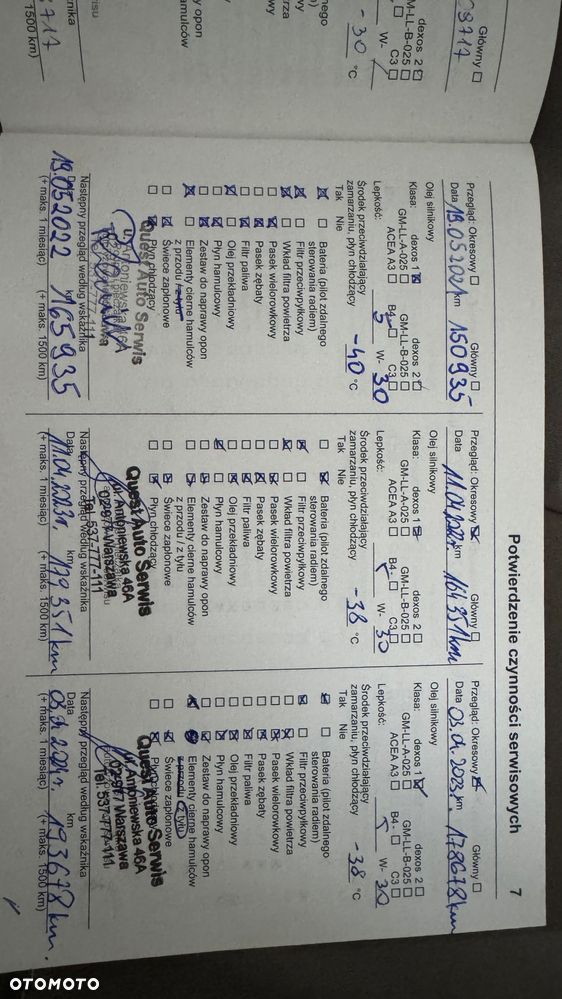 Główny ☐
C8717
dexos 2 ☑
GM-LL-B-025 ☐
C3 ☐
W-
-30 °C
hamulców
Potwierdzenie czynności serwisowych
7
Przegląd: Okresowy ☐ Główny ☐
Data 19.05.2021 km 150935
Olej silnikowy
Klasa: dexos 1 ☒ dexos 2 ☐
GM-LL-A-025 ☐ GM-LL-B-025 ☐
ACEA A3 ☐ C3 ☐
Lepkość: 5 W- 30
Środek przeciwdziałający
zamarzaniu, płyn chłodzący -40 °C
Tak Nie
Bateria (pilot zdalnego
sterowania radiem)
Filtr przeciwpyłkowy
Wkład filtra powietrza
Pasek wielorowkowy
Pasek zębaty
Filtr paliwa
Olej przekładniowy
Płyn hamulcowy
Zestaw do naprawy opon
Elementy cierne hamulców
z przodu / z tyłu
Świece zapłonowe
Płyn chłodzący
Quest Auto Serwis
Następny przegląd według wskaźnika
Data km
19.05.2022 165935
(+ maks. 1 miesiąc) (+ maks. 1500 km)
Przegląd: Okresowy ☒ Główny ☐
Data 11.04.2022 km 164351 km
Olej silnikowy
Klasa: dexos 1 ☒ dexos 2 ☐
GM-LL-A-025 ☐ GM-LL-B-025 ☐
ACEA A3 ☐ B4- ☐ C3 ☐
Lepkość: 5 W- 30
Środek przeciwdziałający
zamarzaniu, płyn chłodzący -38 °C
Tak Nie
Bateria (pilot zdalnego
sterowania radiem)
Filtr przeciwpyłkowy
Wkład filtra powietrza
Pasek wielorowkowy
Pasek zębaty
Filtr paliwa
Olej przekładniowy
Płyn hamulcowy
Zestaw do naprawy opon
Elementy cierne hamulców
z przodu / z tyłu
Świece zapłonowe
Płyn chłodzący
Quest Auto Serwis
ul. Antoniewska 46A
02-977 Warszawa
Tel. 537-777-111
Następny przegląd według wskaźnika
Data km
11.04.2023r. 179351 km
(+ maks. 1 miesiąc) (+ maks. 1500 km)
Przegląd: Okresowy ☒ Główny ☐
Data 03.01.2023 km 178678 km
Olej silnikowy
Klasa: dexos 1 ☒ dexos 2 ☐
GM-LL-A-025 ☐ GM-LL-B-025 ☐
ACEA A3 ☐ B4- ☐ C3 ☐
Lepkość: 5 W- 30
Środek przeciwdziałający
zamarzaniu, płyn chłodzący -38 °C
Tak Nie
Bateria (pilot zdalnego
sterowania radiem)
Filtr przeciwpyłkowy
Wkład filtra powietrza
Pasek wielorowkowy
Pasek zębaty
Filtr paliwa
Olej przekładniowy
Płyn hamulcowy
Zestaw do naprawy opon
Elementy cierne hamulców
z przodu / z tyłu
Świece zapłonowe
Płyn chłodzący
Quest Auto Serwis
ul. Antoniewska 46A
02-977 Warszawa
Tel. 537-777-111
Następny przegląd według wskaźnika
Data km
03.01.2024r. 193678 km.
(+ maks. 1 miesiąc) (+ maks. 1500 km)
OTOMOTO